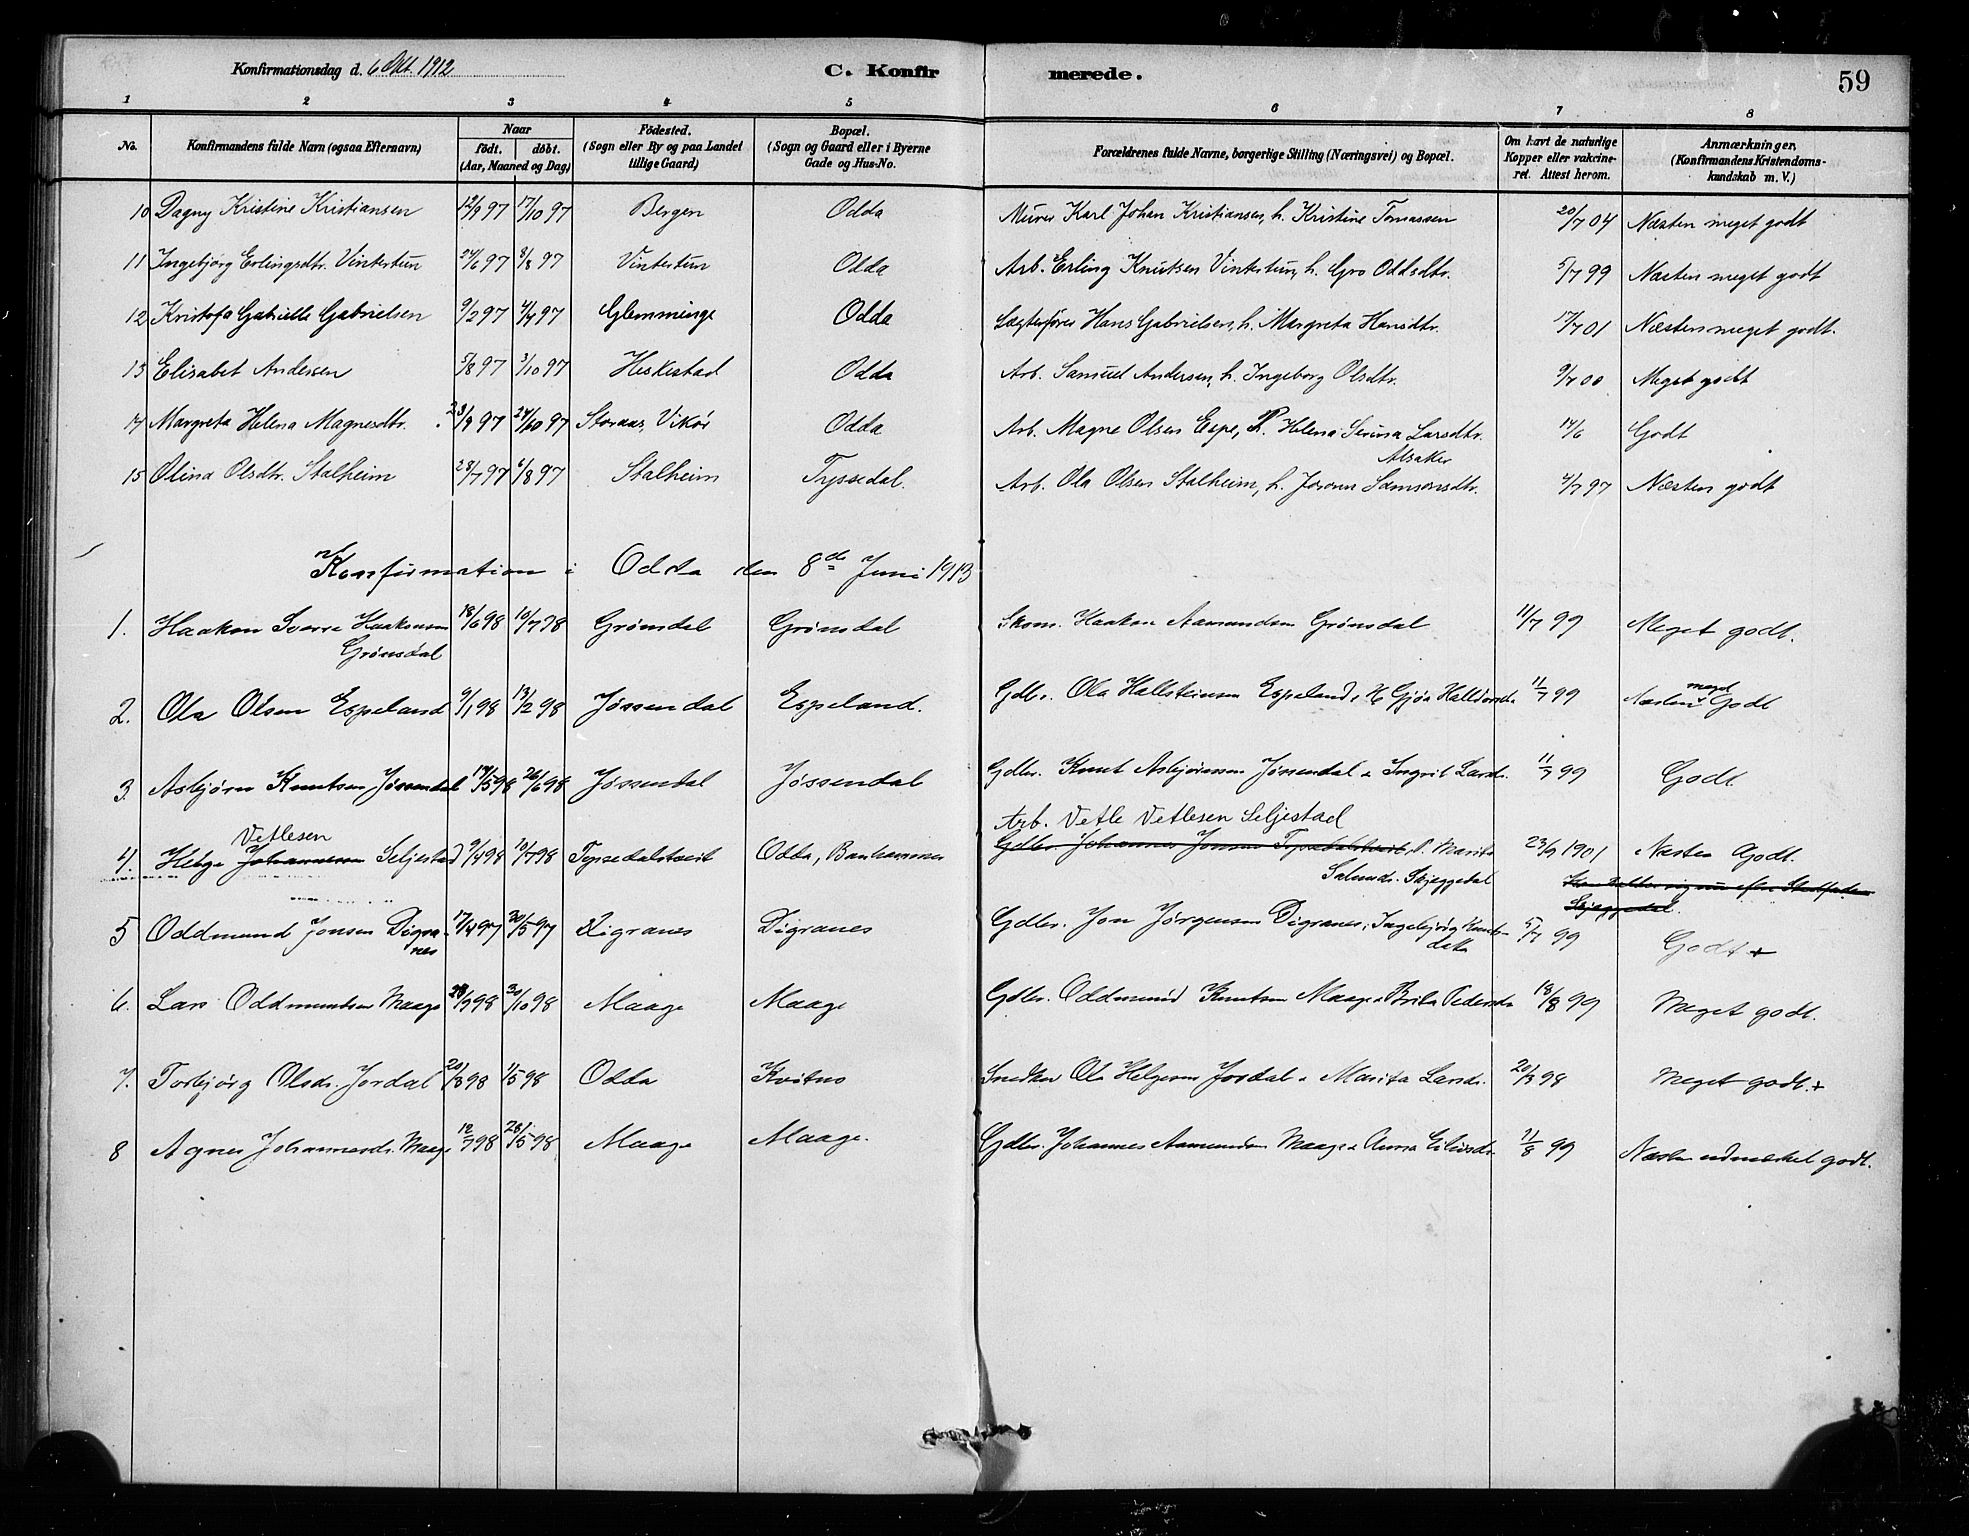 Konfirmationsdag d. 6 Okt. 1912
C. Konfirmerede.
59
1 2 3 4 5 6 7 8
No. Konfirmandens fulde Navn (ogsaa Efternavn) Naar födt. döbt. (Aar, Maaned og Dag) Födested. (Sogn eller By og paa Landet tillige Gaard) Bopæl. (Sogn og Gaard eller i Byerne Gade og Hus-No. Forældrenes fulde Navne, borgerlige Stilling (Næringsvei) og Bopæl. Om havt de naturlige Kopper eller vakcineret. Attest herom. Anmærkninger. (Konfirmandens Kristendomskundskab m. V.)
10 Dagny Kristine Kristiansen 12/9 97 17/10 97 Bergen Odda Murer Karl Johan Kristiansen, h. Kristine Tomassen 20/7 04 Næsten meget godt
11 Ingebjörg Erlingsdtr. Vintertun 24/6 97 8/8 97 Vintertun Odda Arb. Erling Knutsen Vintertun, h. Gro Oddsdtr. 5/7 99 Næsten meget godt
12 Kristofa Gabrielle Gabrielsen 9/2 97 4/4 97 Glemminge Odda Lægterfører Hans Gabrielsen, h. Margreta Hansdtr. 17/7 01 Næsten meget godt.
13 Elisabet Andersen 5/8 97 3/10 97 Heskestad Odda Arb. Samuel Andersen, h. Ingeborg Olsdtr. 9/7 00 Meget godt
14 Margreta Helena Magnesdtr. 23/9 97 24/10 97 Storaas, Vikör Odda Arb. Magne Olsen Espe, h. Helena Serina Larsdtr. Alsaker 14/6 Godt
15 Olina Olsdtr. Stalheim 28/7 97 6/8 97 Stalheim Tyssedal. Arb. Ola Olsen Stalheim, h. Joronn Samsonsdtr. 4/7 97 Næsten godt
Konfirmation i Odda den 8de Juni 1913
1. Haakon Sverre Haakonsen Grönsdal 18/6 98 10/7 98 Grönsdal Grönsdal Skom. Haakon Aamundsen Grönsdal 11/7 99 Meget godt.
2. Ola Olsen Espeland 9/1 98 13/2 98 Jössendal Espeland. Gdbr. Ola Hallsteinsen Espeland, Gjöa 11/7 99 Næsten meget Godt
3. Asbjörn Knutsen Jössendal 14/5 98 26/6 98 Jössendal Jössendal Gdbr. Knut Asbjörnsen Jössendal & Ingrit Larsdr. 11/7 99 Godt.
Vetlesen Arb. Vetle Vetlesen Seljestad
4. Helge Johannessen Seljestad 9/4 98 10/7 98 Tyssedalstveit Odda, Gdbr. Johannes Jonsen Tyssedalstveit, Marita 23/9 1901 Næsten Godt.
Skjeggedal
Skjeggedal.
5 Oddmund Jonsen Digranes 17/4 97 30/5 97 Digranes Digranes Gdbr. Jon Jörgensen Digranes, Ingebjörg Knutsdatter 5/7 99 Godt +
6. Lars Oddmundsen Maage 28/9 98 30/10 98 Maage Maage Gdbr. Oddmund Knutsen Maage & Brita 18/8 99 Meget godt.
7. Torbjörg Olsdr. Jordal 20/3 98 1/5 98 Odda Snedker Ola Helgesen Jordal & Marita Larsdr. 20/9 98 Meget godt. +
8 Agnes Johannesdr. Maage 12/ 98 28/5 98 Maage Maage. Gdbr. Johannes Aamundsen Maage & Anna Eilivsdr. 11/8 99 Næsten udmærket godt.